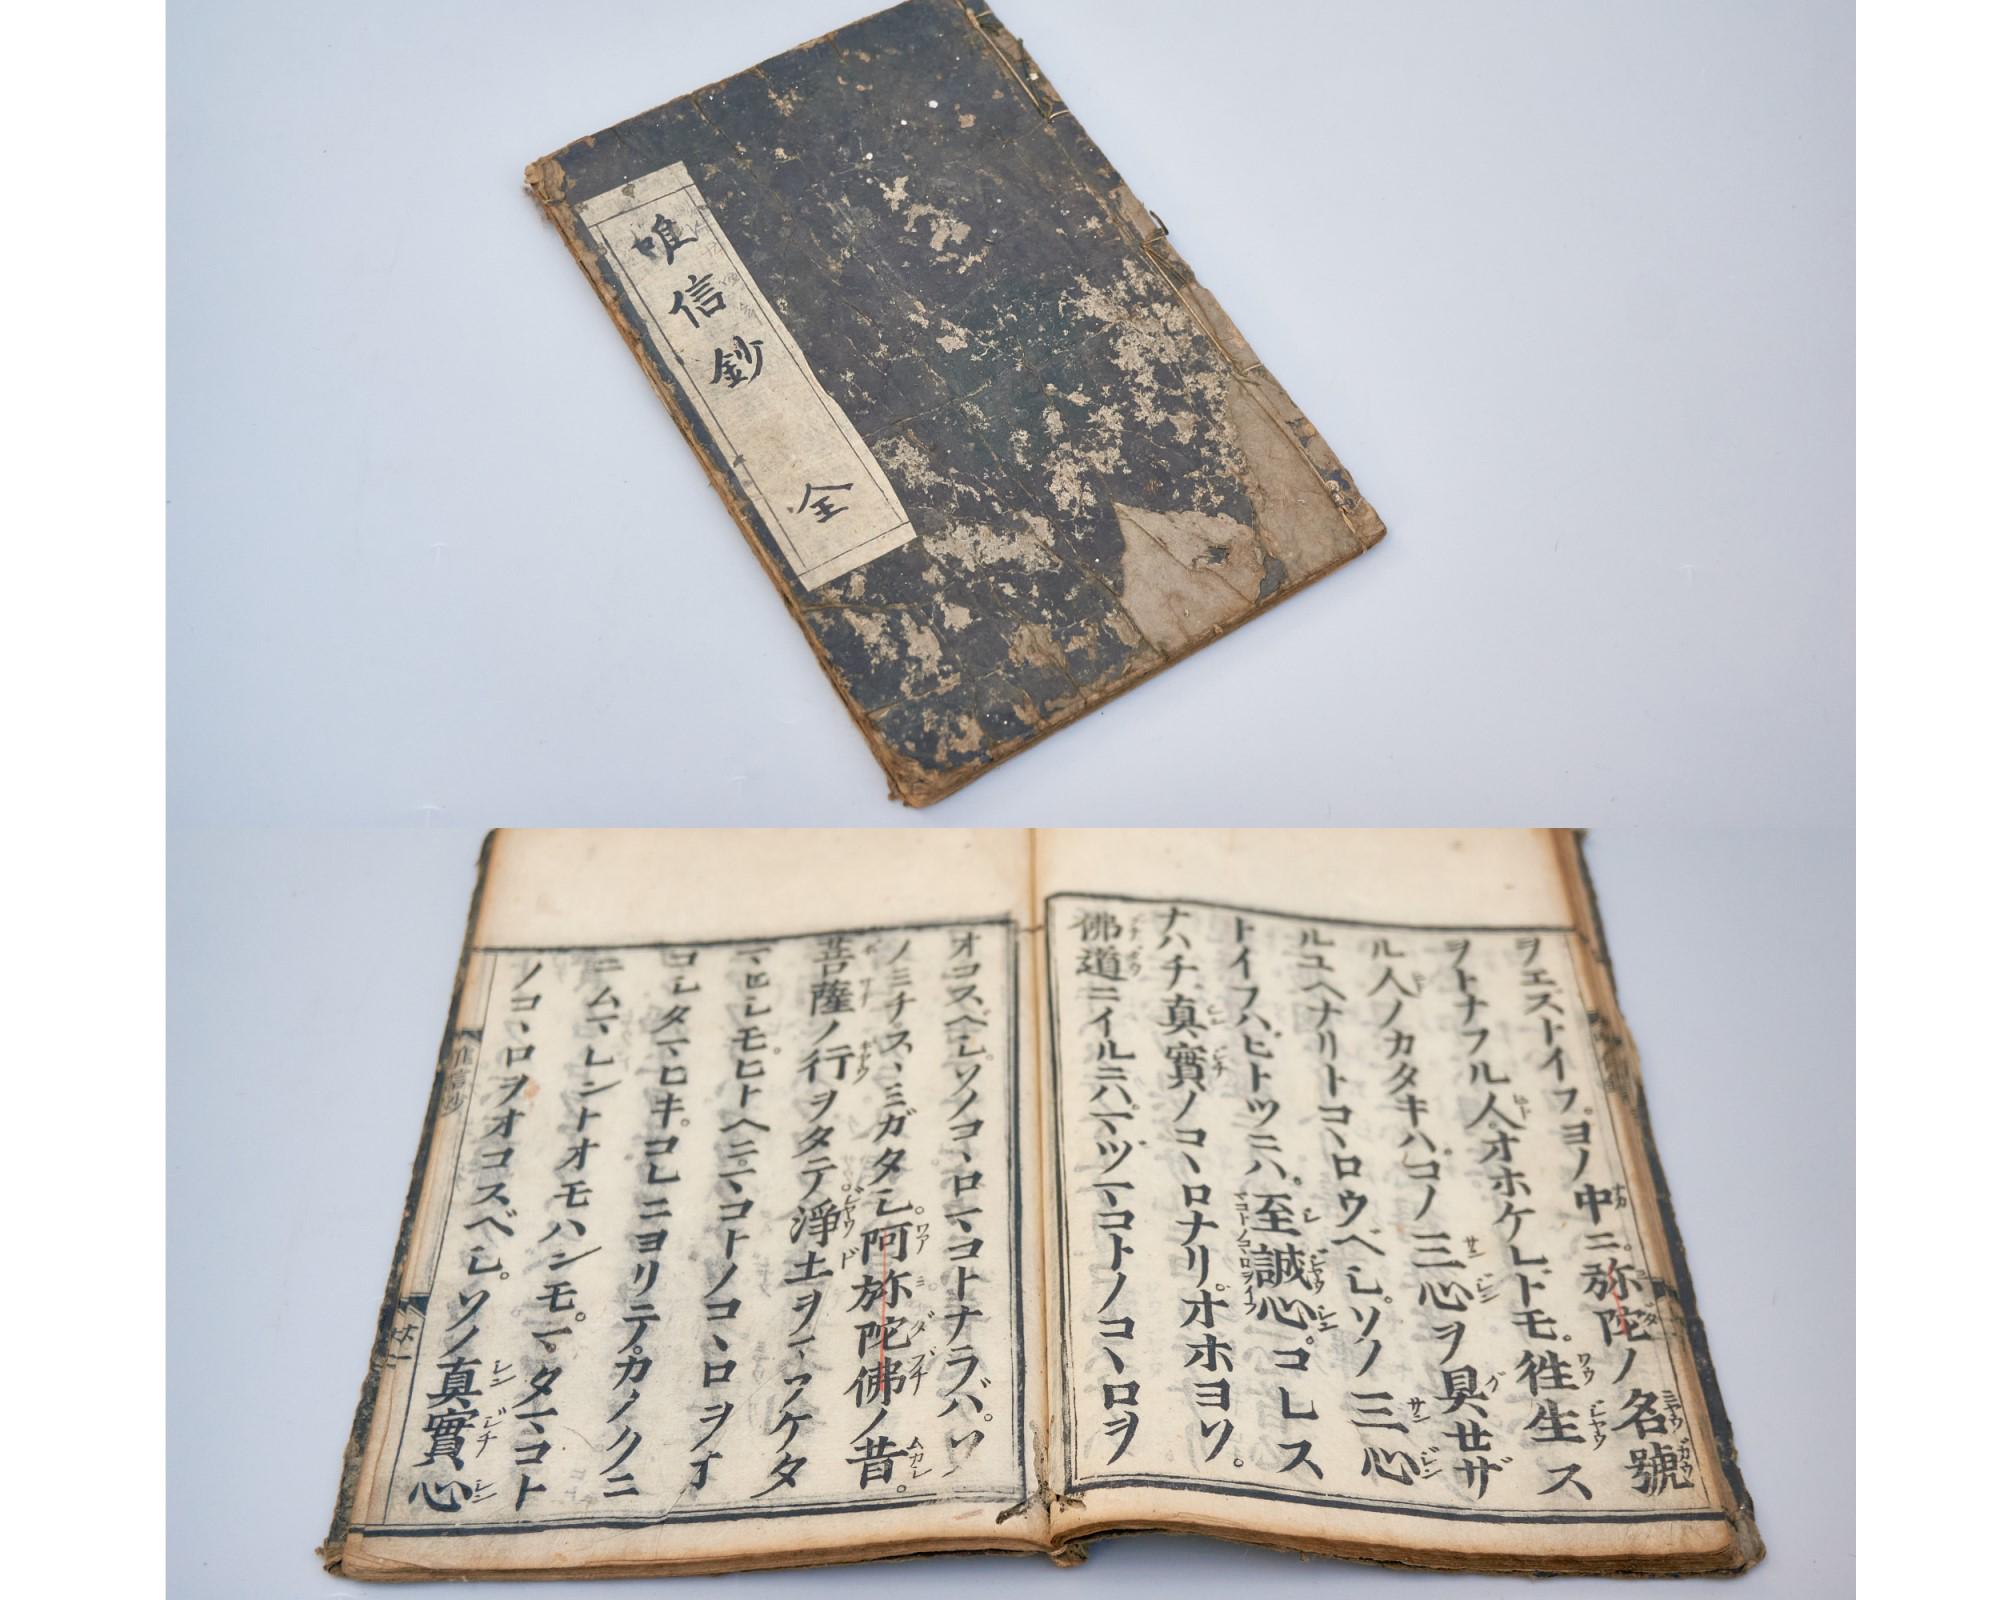 唯信鈔 全
ヲエズトイフ。ヨノ中ニ。弥陀ノ名號
ヲトナフル人オホケレドモ。徃生ス
ル人ノカタキハ。コノ三心ヲ具セザ
ルユヘナリトコヽロウベシ。ソノ三心
トイフハ。ヒトツニハ。至誠心。コレス
ナハチ真實ノコヽロナリ。オホヨソ。
佛道ニイルニハ。マヅマコトノコヽロヲ
オコスベシ。ソノコヽロマコトナラバ。ソ
ノミチスヽミガタシ。阿弥陀佛ノ昔。
菩薩ノ行ヲタテ。淨土ヲマフケタ
マヒシモ。ヒトヘニマコトノコヽロヲオ
コシタマヒキ。コレニヨリテカノクニ
ニムマレントオモハンモ。マタマコト
ノコヽロヲオコスベシ。ソノ真實心